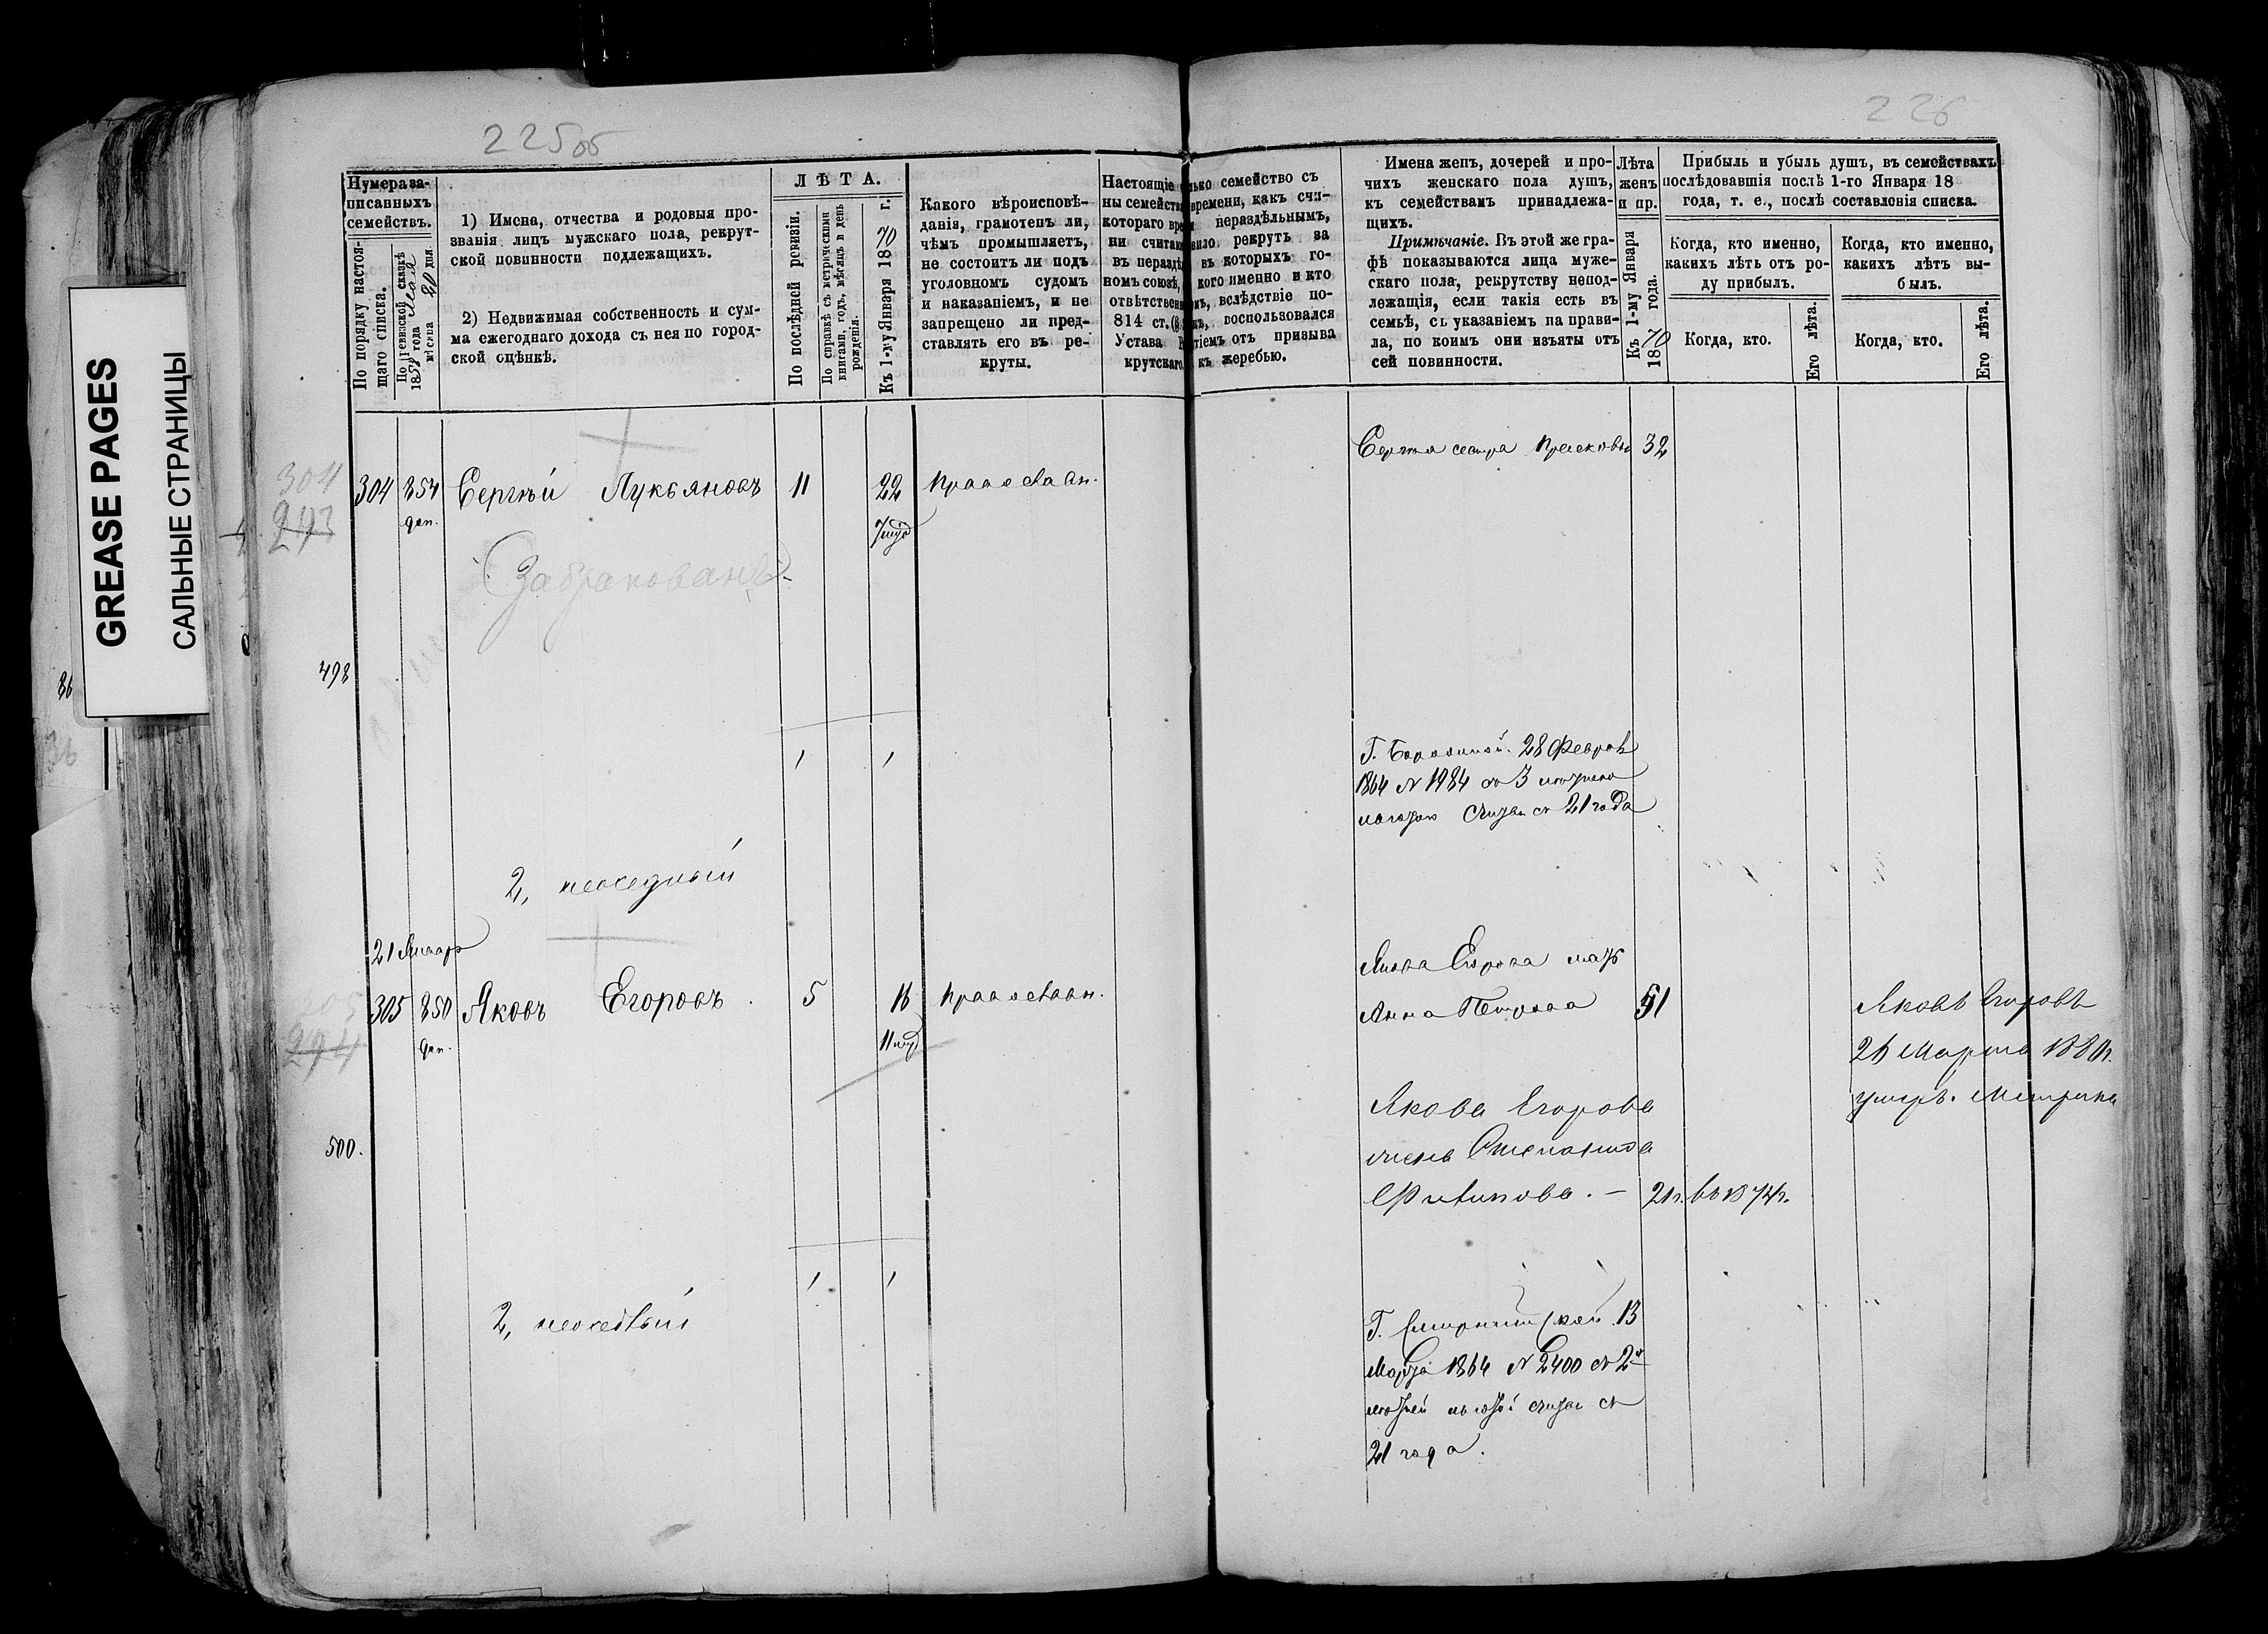 GREASE PAGES
САЛЬНЫЕ СТРАНИЦЫ
225об
226
Нумера за-
писанныхъ
семействъ.
По порядку настоя-
щаго списка.
По ревизской сказкѣ
1858 года мая
мѣсяца 20 дня.
1) Имена, отчества и родовыя про-
званія лицъ мужскаго пола, рекрут-
ской повинности подлежащихъ.
2) Недвижимая собственность и сум-
ма ежегоднаго дохода съ нея по город-
ской оцѣнкѣ.
ЛѢТА.
По послѣдней ревизіи.
По справкѣ съ метрическими
книгами, годъ, мѣсяцъ и день
рожденія.
Къ 1-му Января 1870 г.
Какого вѣроисповѣ-
данія, грамотенъ ли,
чѣмъ промышляетъ,
не состоитъ ли подъ
уголовномъ судомъ
и наказаніемъ, и не
запрещено ли пред-
ставлять его въ ре-
круты.
Настоящіе
ны семейства
котораго вре
ни считаю
въ нераздѣ
номъ союзѣ,
отвѣтствен
814 ст.
Устава Р
крутскаго
лько семейство съ
времени, какъ счи-
нераздѣльнымъ,
вило рекрутъ за
въ которыхъ го-
кого именно и кто
мъ, вслѣдствіе по-
къ, воспользовался
тіемъ отъ призыва
къ жеребью.
Имена женъ, дочерей и про-
чихъ женскаго пола душъ,
къ семействамъ принадлежа-
щихъ.
Примѣчаніе. Въ этой же гра-
фѣ показываются лица муже-
скаго пола, рекрутству непод-
лежащія, если такія есть въ
семьѣ, съ указаніемъ на прави-
ла, по коимъ они изъяты отъ
сей повинности.
Лѣта
женъ
и пр.
Къ 1-му Января
1870 года.
Прибыль и убыль душъ, въ семействахъ
послѣдовавшія послѣ 1-го Января 18
года, т. е., послѣ составленія списка.
Когда, кто именно,
какихъ лѣтъ отъ ро-
ду прибылъ.
Когда, кто именно,
какихъ лѣтъ вы-
былъ.
Когда, кто.
Его лѣта.
Когда, кто.
Его лѣта.
Сергѣя сестра Прасковья 32
304
293
304 854 Сергѣй Лукьяновъ 11 22 Православн.
доп.
Забракованъ.
498
1 1
28 Февраля
1864 N 1984
считая съ 21 года
2,
21 Января
Якова Егорова мать
305
294
305 850 Яковъ Егоровъ 5 16 Православн.
доп.
Анна Петрова 51
Яковъ Егоровъ
26 Марта 1880г.
умеръ. Метрика
Якова Егорова
жена Степанида
Филипова. — 21г. въ 1874г.
500.
1 1
2,
13
Марта 1864 N 2400
считая съ
21 года.